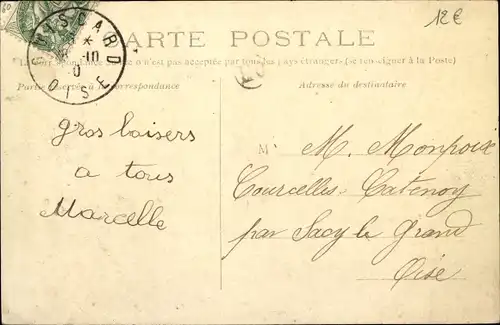 60
12€
GUISCARD
* -10
0
OISE
CARTE POSTALE
La correspondance au recto n'est pas acceptée par tous les pays étrangers (se renseigner à la Poste)
Partie réservée à la correspondance
Adresse du destinataire
Gros baisers
a tous
Marcelle
M
M. Monpoix
Courcelles-Catenoy
par Sacy le Grand
Oise